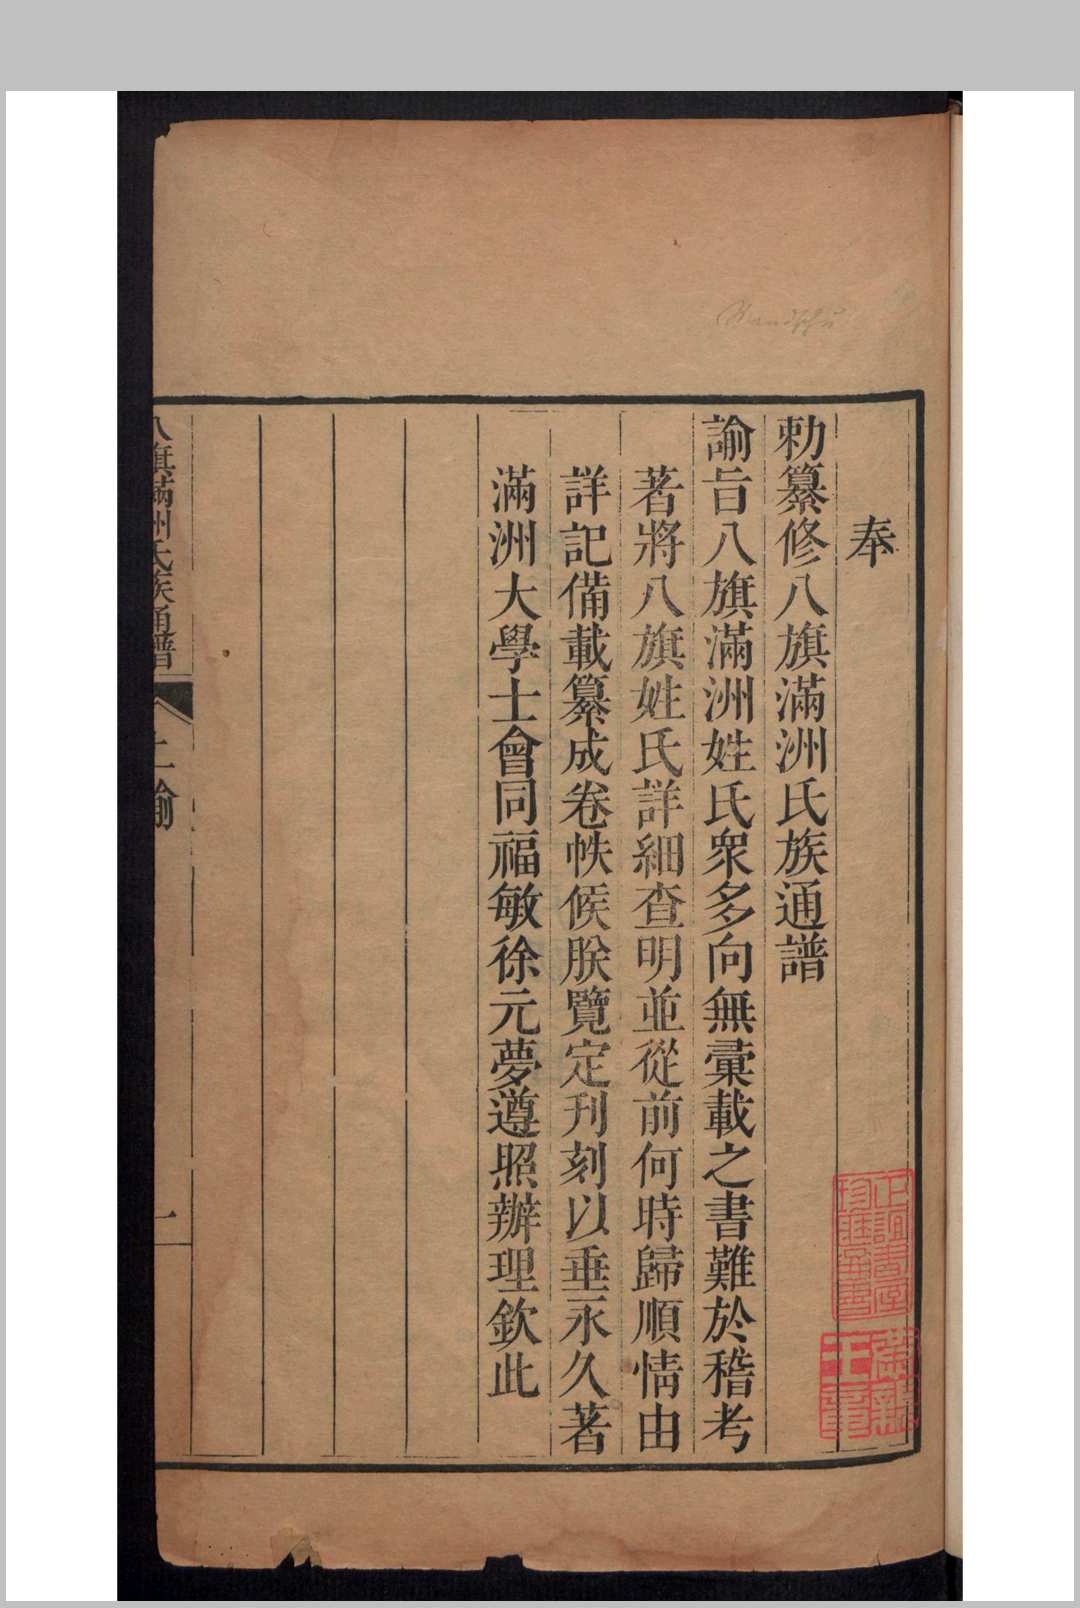 奉
勅纂修八旗滿洲氏族通譜
諭旨八旗滿洲姓氏衆多向無彙載之書難於稽考
著將八旗姓氏詳細查明並從前何時歸順情由
詳記備載纂成卷帙候朕覽定刊刻以垂永久著
滿洲大學士會同福敏徐元夢遵照辦理欽此
八旗滿洲氏族通譜
上諭
一
Mandschu